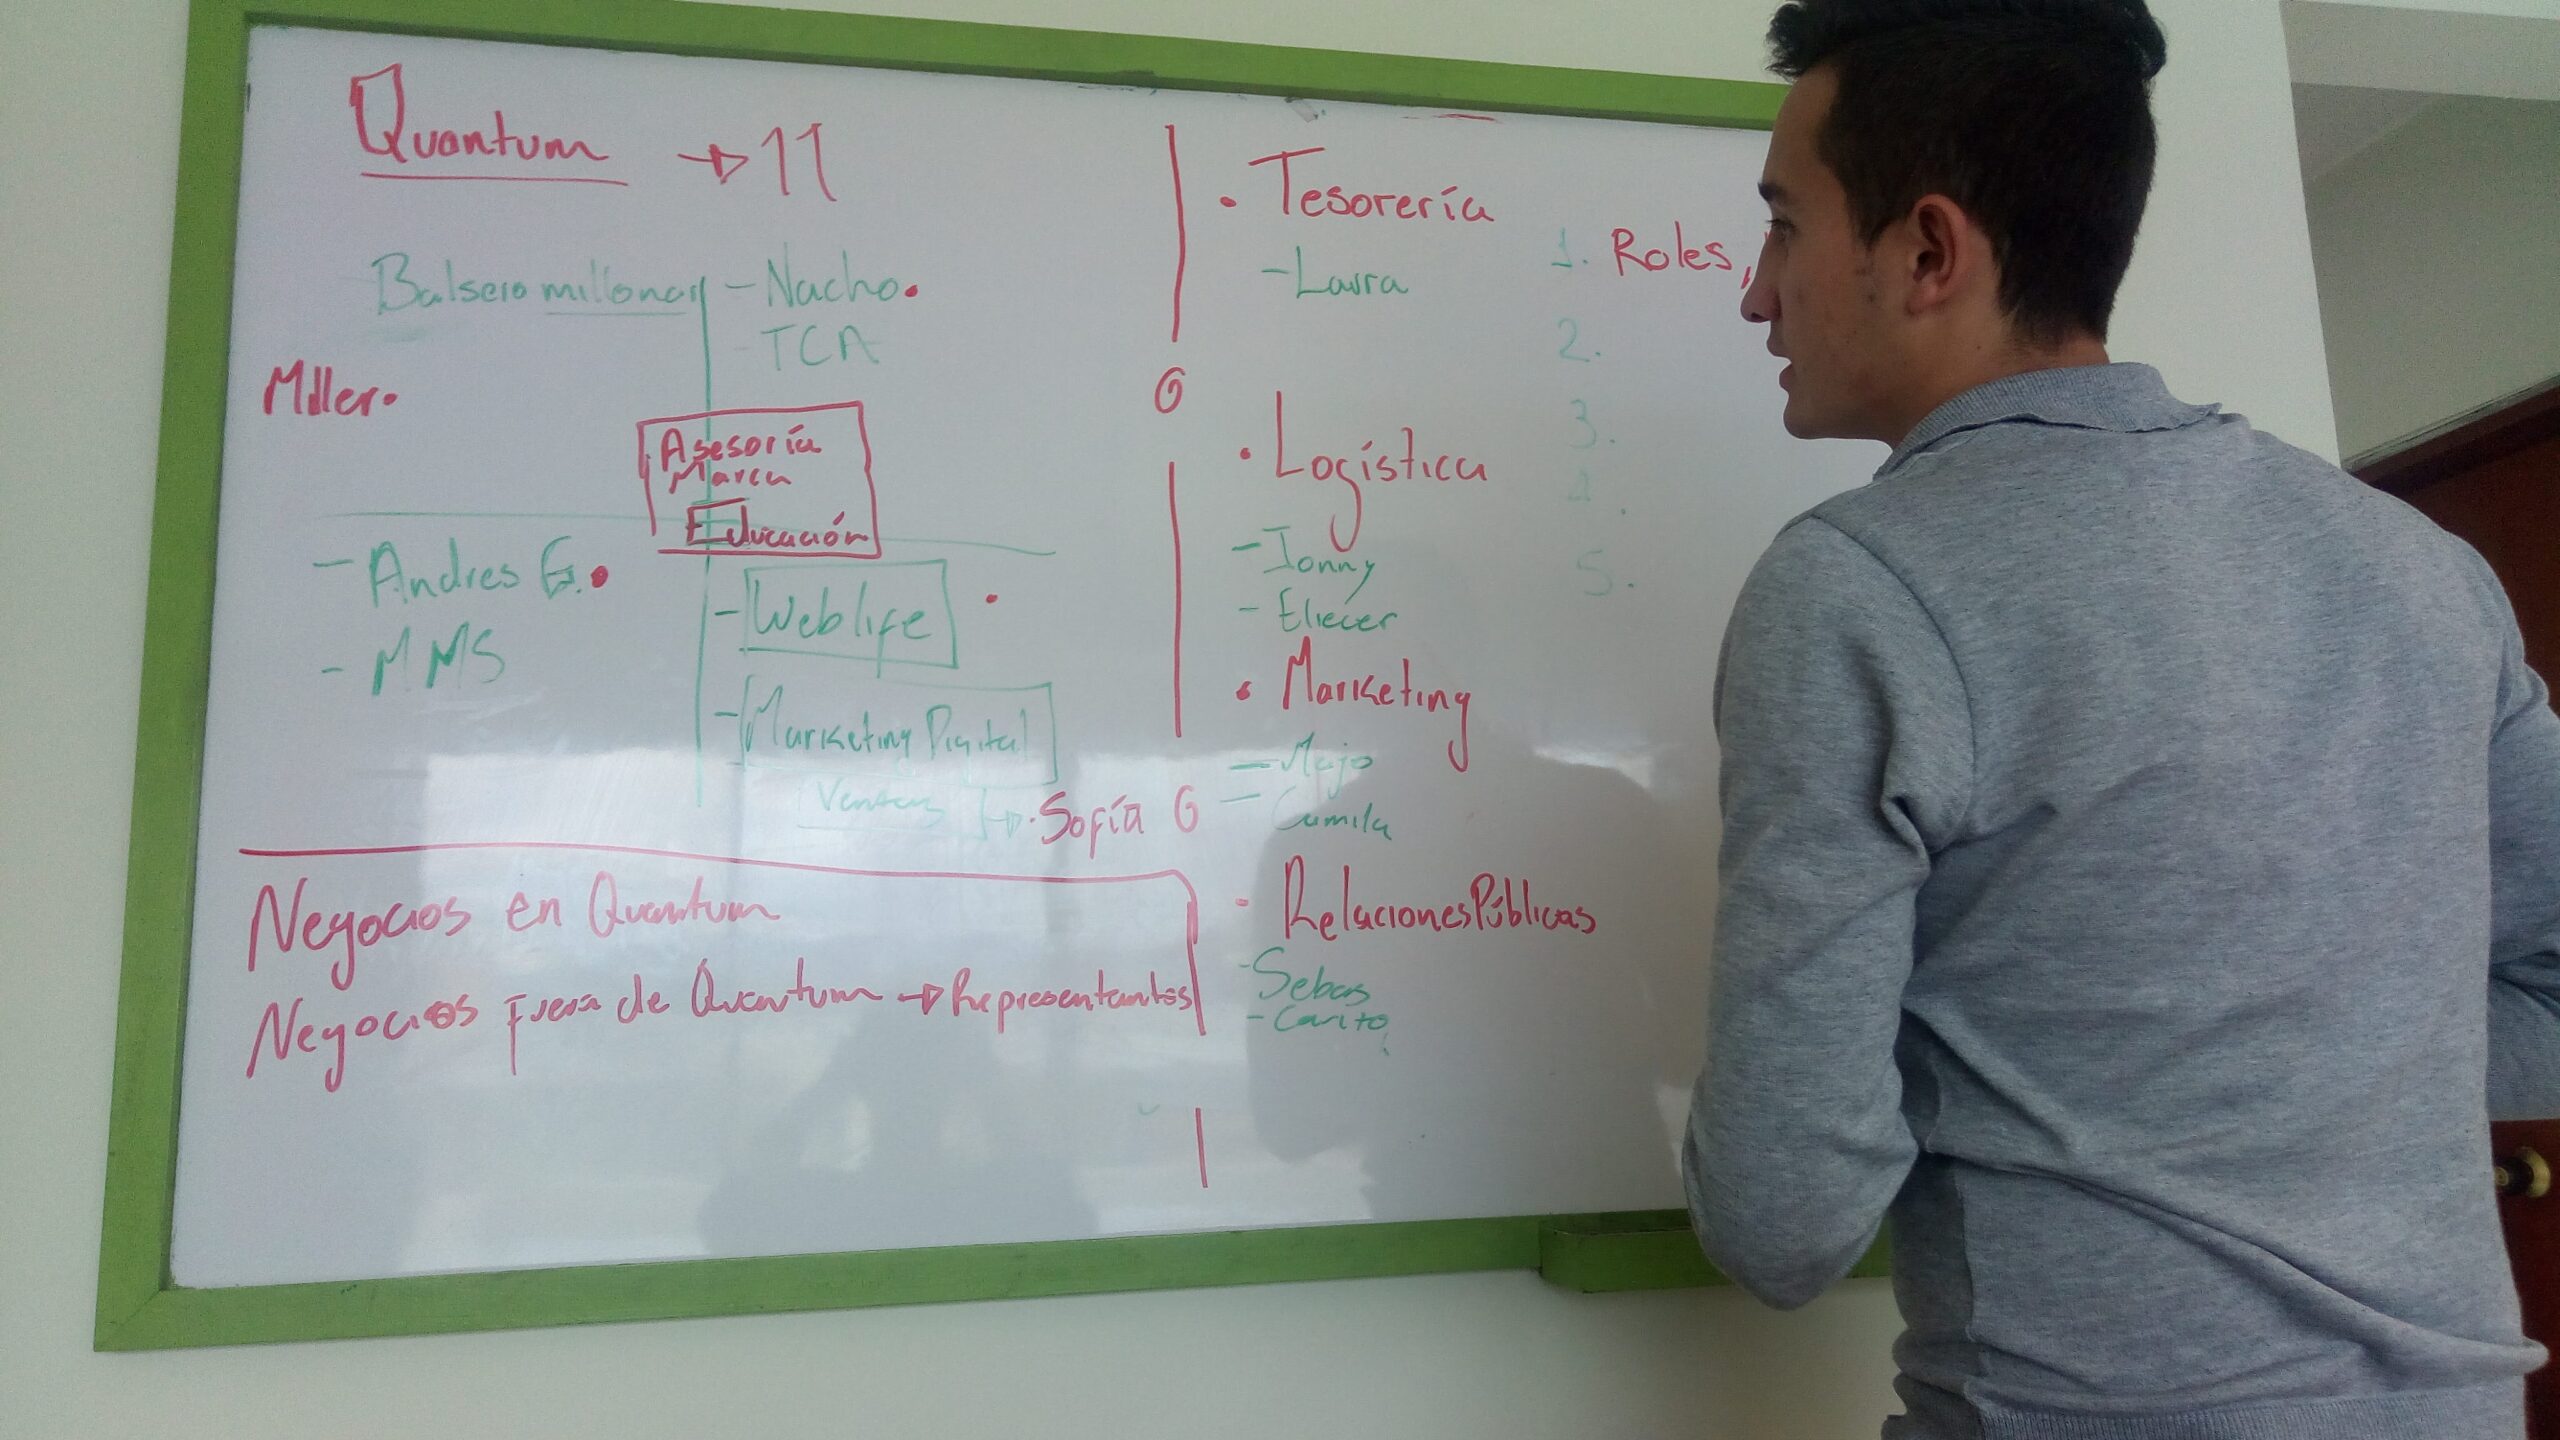 Quantum → 11
Balsero millonar
- Nacho.
- TCA
Miller.
Asesoría
Marca
Educación
- Andres G.
- MMS
- Weblife
- Marketing Digital
Ventas → . Sofía G
Negocios en Quantum
Negocios fuera de Quantum → Representantes
G
• Tesorería
- Laura
• Logística
- Jonny
- Eliecer
• Marketing
- Majo
- Camila
• Relaciones Públicas
- Sebas
- Carito
1. Roles,
2.
3.
5.